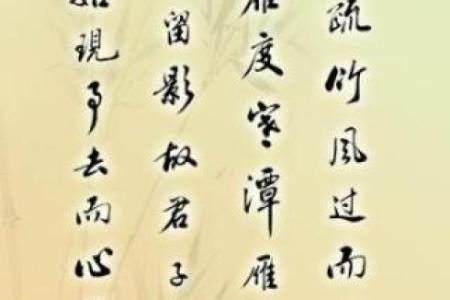 疏竹风过而
雁度寒潭雁
留影故君子
现事去而心